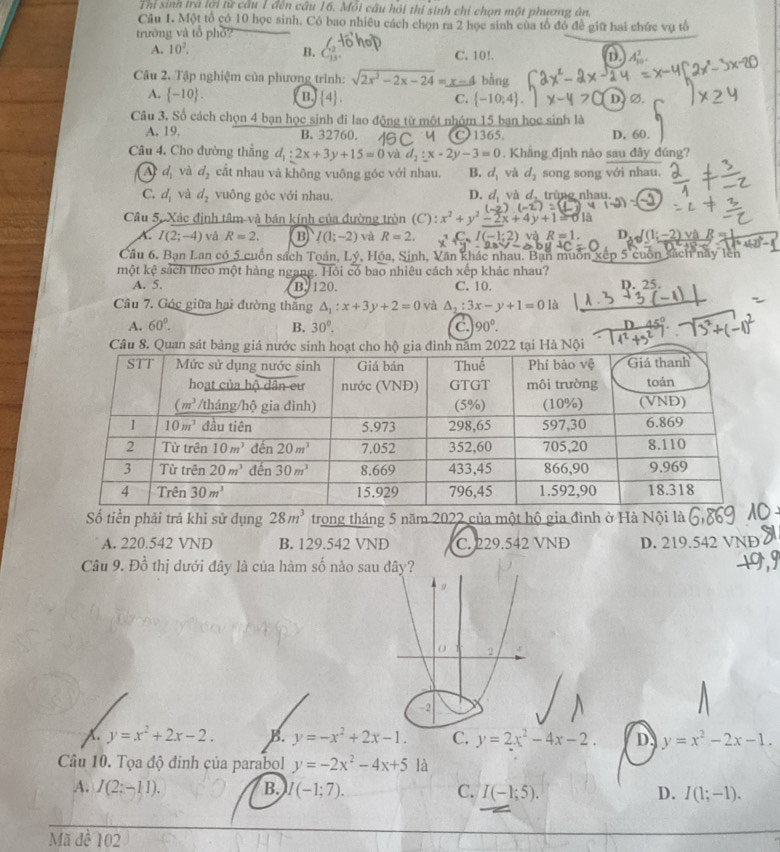 Thí sinh trả lời từ câu 1 đến câu 16. Mỗi câu hỏi thí sinh chỉ chọn một phương án.
Câu 1. Một tổ có 10 học sinh. Có bao nhiêu cách chọn ra 2 học sinh của tổ đó để giữ hai chức vụ tổ
trưởng và tổ phó?
tổ hợp
A. 10². B. C. 10!. D. A²₁₀.
Câu 2. Tập nghiệm của phương trình: √(2x² - 2x - 24) = x - 4 bằng
A. {-10}. B. {4}. C. {-10;4}. D. ∅.
x - 4 > 0
x ≥ 4
Câu 3. Số cách chọn 4 bạn học sinh đi lao động từ một nhóm 15 bạn học sinh là
A. 19. B. 32760. C. 1365. D. 60.
15C4
Câu 4. Cho đường thẳng d₁ : 2x + 3y + 15 = 0 và d₂ : x - 2y - 3 = 0. Khẳng định nào sau đây đúng?
A. d₁ và d₂ cắt nhau và không vuông góc với nhau. B. d₁ và d₂ song song với nhau.
C. d₁ và d₂ vuông góc với nhau. D. d₁ và d₂ trùng nhau.
2/1 ≠ 3/-2
Câu 5. Xác định tâm và bán kính của đường tròn (C): x² + y² - 2x + 4y + 1 = 0 là
A. I(2;-4) và R = 2. B. I(1;-2) và R = 2. C. I(-1;2) và R = 1. D. I(1;-2) và R = 1.
Câu 6. Bạn Lan có 5 cuốn sách Toán, Lý, Hóa, Sinh, Văn khác nhau. Bạn muốn xếp 5 cuốn sách này lên
một kệ sách theo một hàng ngang. Hỏi có bao nhiêu cách xếp khác nhau?
A. 5. B. 120. C. 10. D. 25.
Câu 7. Góc giữa hai đường thẳng Δ₁ : x + 3y + 2 = 0 và Δ₂ : 3x - y + 1 = 0 là
A. 60⁰. B. 30⁰. C. 90⁰. D. 45⁰.
|1.3 + 3(-1)|
√(1² + 3²) . √(3² + (-1)²)
Câu 8. Quan sát bảng giá nước sinh hoạt cho hộ gia đình năm 2022 tại Hà Nội
STT Mức sử dụng nước sinh Giá bán Thuế Phí bảo vệ Giá thanh
hoạt của hộ dân cư nước (VNĐ) GTGT môi trường toán
(m³/tháng/hộ gia đình) (5%) (10%) (VNĐ)
1 10 m³ đầu tiên 5.973 298,65 597,30 6.869
2 Từ trên 10 m³ đến 20 m³ 7.052 352,60 705,20 8.110
3 Từ trên 20 m³ đến 30 m³ 8.669 433,45 866,90 9.969
4 Trên 30 m³ 15.929 796,45 1.592,90 18.318
Số tiền phải trả khi sử dụng 28m³ trong tháng 5 năm 2022 của một hộ gia đình ở Hà Nội là 6,869 10
A. 220.542 VNĐ B. 129.542 VNĐ C. 229.542 VNĐ D. 219.542 VNĐ
Câu 9. Đồ thị dưới đây là của hàm số nào sau đây?
y
O 2 x
-2
A. y = x² + 2x - 2. B. y = -x² + 2x - 1. C. y = 2x² - 4x - 2. D. y = x² - 2x - 1.
Câu 10. Tọa độ đỉnh của parabol y = -2x² - 4x + 5 là
A. I(2;-11). B. I(-1;7). C. I(-1;5). D. I(1;-1).
Mã đề 102